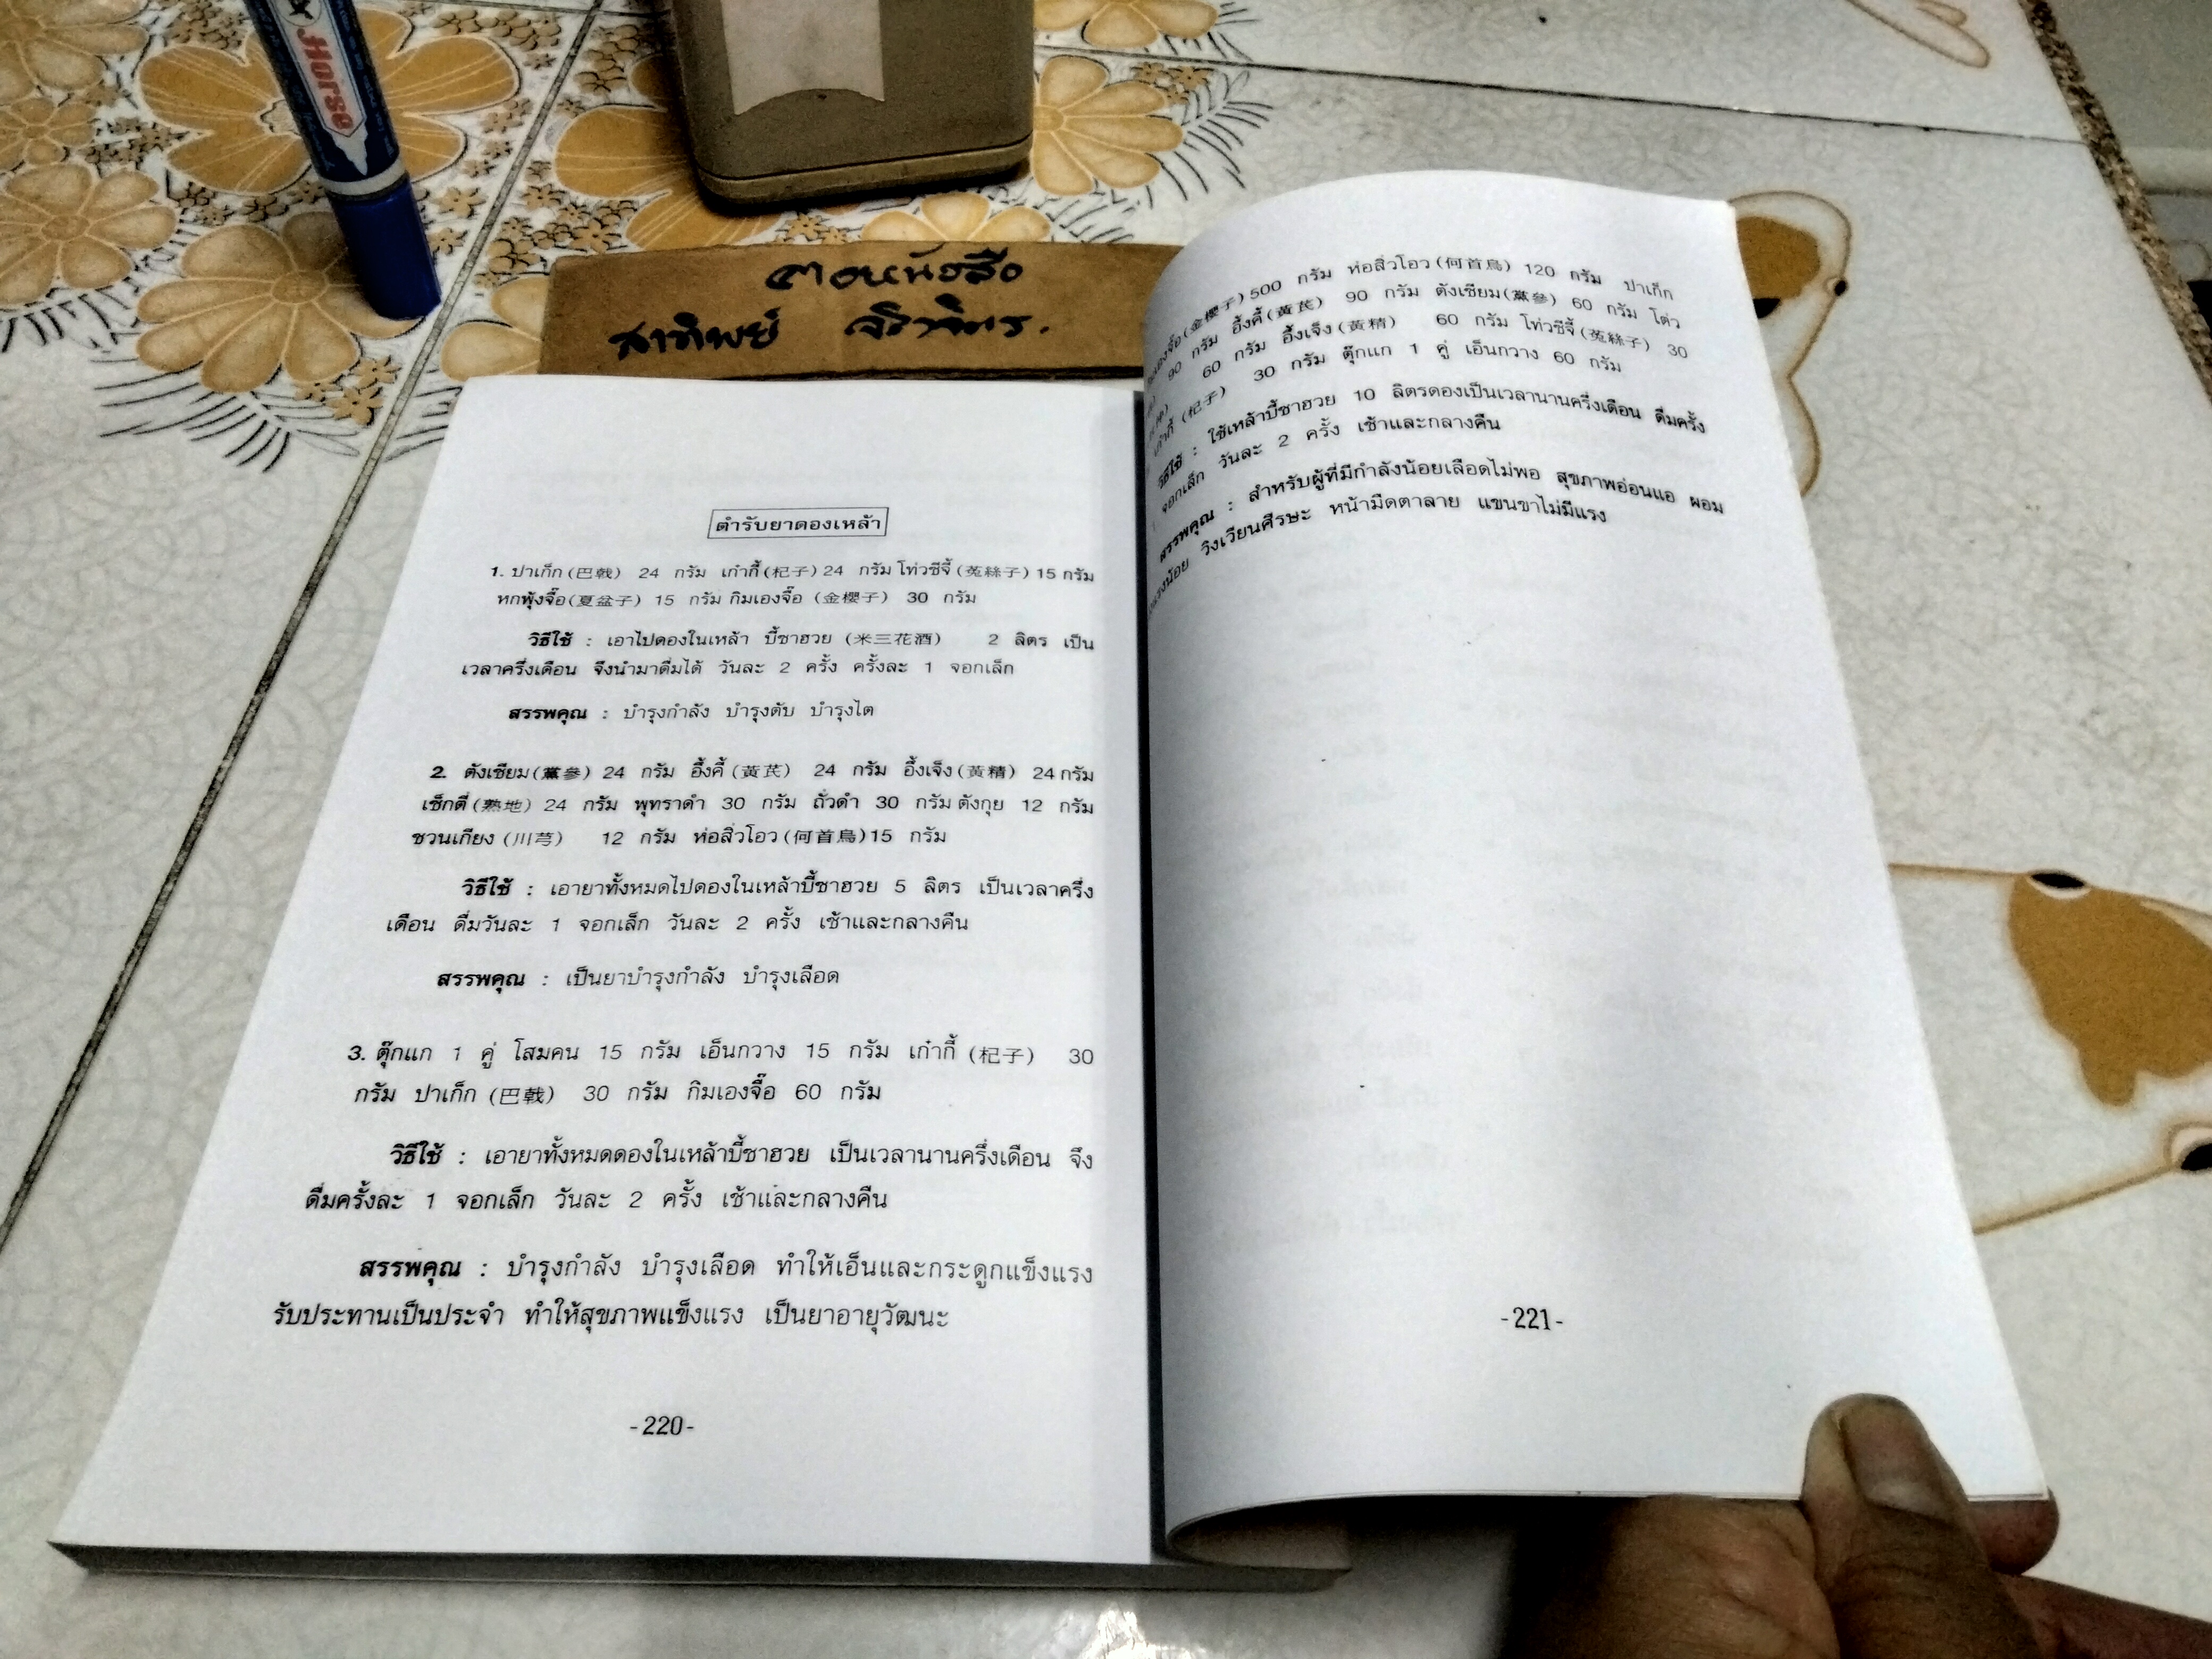 Horse
ตอหนังสือ
สาทิพย์
ตำรับยาดองเหล้า
1. ปาเก็ก (巴戟) 24 กรัม เก๋ากี้ (杞子) 24 กรัม โท่วซีจี้ (菟絲子) 15 กรัม
หกพุ้งจื๊อ (夏盆子) 15 กรัม กิมเองจื๊อ (金櫻子) 30 กรัม
วิธีใช้ : เอาไปดองในเหล้า บี้ซาฮวย (米三花酒) 2 ลิตร เป็น
เวลาครึ่งเดือน จึงนำมาดื่มได้ วันละ 2 ครั้ง ครั้งละ 1 จอกเล็ก
สรรพคุณ : บำรุงกำลัง บำรุงตับ บำรุงไต
2. ตังเซียม (黨參) 24 กรัม อึ้งคี้ (黃芪) 24 กรัม อึ้งเจ็ง (黃精) 24 กรัม
เซ็กตี่ (熟地) 24 กรัม พุทราดำ 30 กรัม ถั่วดำ 30 กรัม ตังกุย 12 กรัม
ชวนเกียง (川芎) 12 กรัม ห่อสิ่วโอว (何首烏) 15 กรัม
วิธีใช้ : เอายาทั้งหมดไปดองในเหล้าบี้ซาฮวย 5 ลิตร เป็นเวลาครึ่ง
เดือน ดื่มวันละ 1 จอกเล็ก วันละ 2 ครั้ง เช้าและกลางคืน
สรรพคุณ : เป็นยาบำรุงกำลัง บำรุงเลือด
3. ตุ๊กแก 1 คู่ โสมคน 15 กรัม เอ็นกวาง 15 กรัม เก๋ากี้ (杞子) 30
กรัม ปาเก็ก (巴戟) 30 กรัม กิมเองจื๊อ 60 กรัม
วิธีใช้ : เอายาทั้งหมดดองในเหล้าบี้ซาฮวย เป็นเวลานานครึ่งเดือน จึง
ดื่มครั้งละ 1 จอกเล็ก วันละ 2 ครั้ง เช้าและกลางคืน
สรรพคุณ : บำรุงกำลัง บำรุงเลือด ทำให้เอ็นและกระดูกแข็งแรง
รับประทานเป็นประจำ ทำให้สุขภาพแข็งแรง เป็นยาอายุวัฒนะ
-220-
(金櫻子) 500 กรัม ห่อสิ่วโอว (何首烏) 120 กรัม ปาเก็ก
90 กรัม อึ้งคี้ (黃芪) 90 กรัม ตังเซียม (黨參) 60 กรัม โต่ว
60 กรัม อึ้งเจ็ง (黃精) 60 กรัม โท่วซีจี้ (菟絲子) 30
เก๋ากี้ (杞子) 30 กรัม ตุ๊กแก 1 คู่ เอ็นกวาง 60 กรัม
วิธีใช้ : ใช้เหล้าบี้ซาฮวย 10 ลิตรดองเป็นเวลานานครึ่งเดือน ดื่มครั้ง
จอกเล็ก วันละ 2 ครั้ง เช้าและกลางคืน
สรรพคุณ : สำหรับผู้ที่มีกำลังน้อยเลือดไม่พอ สุขภาพอ่อนแอ ผอม
แรงน้อย วิงเวียนศีรษะ หน้ามืดตาลาย แขนขาไม่มีแรง
-221-